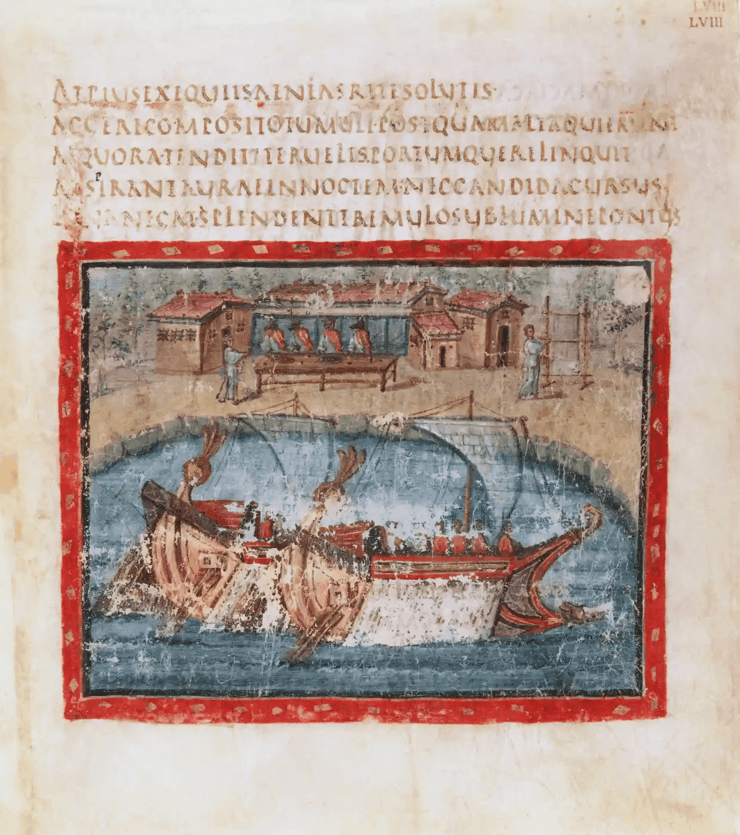 LVIII
LVIII
ATPIUSEXEQUIISAENEASRITESOLUTIS
AGGERECOMPOSITOTUMULIPOSTQUAMALTAQUIERUNT
AEQUORATENDITITERUELISPORTUMQUERELINQUIT
ADSPIRANTAURAEINNOCTEMNECCANDIDACURSUS
NEGATSPLENDETTREMULOSUBLUMINEPONTUS